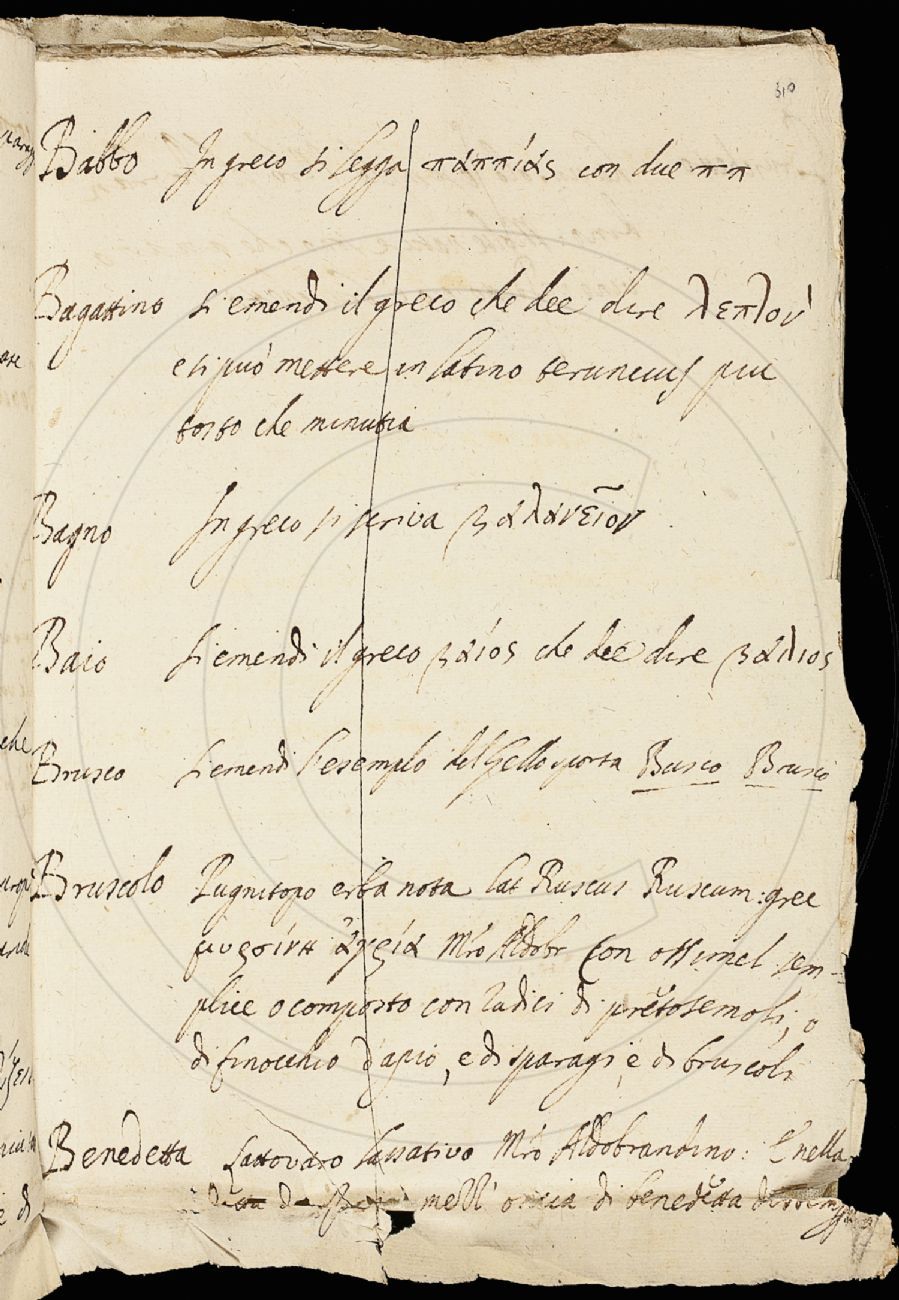 310
Babbo In greco si legga παππίάς con due ππ
Bagattino si emendi il greco che dee dire λεπλον
e si può mettere in latino teruncius piu
tosto che minutia
Bagno In greco si scriva βαλανεῖον
Baio Si emendi il greco βαίός che dee dire βάλιος
Brusco Si emendi l'esempio del Gello sporta Busco Brusco
Bruscolo Pugnitopo erba nota lat Ruscus Ruscum: grec
μυρσίνη ἀγρία Mro Aldobr Con ossimel sem-
plice o composto con radici di pretosemoli, o
di finocchio d'apio, e di sparagi, e di bruscoli
Benedetta Lattovaro lassativo Mro Aldobrandino: E nella
detta mezz' oncia di benedetta